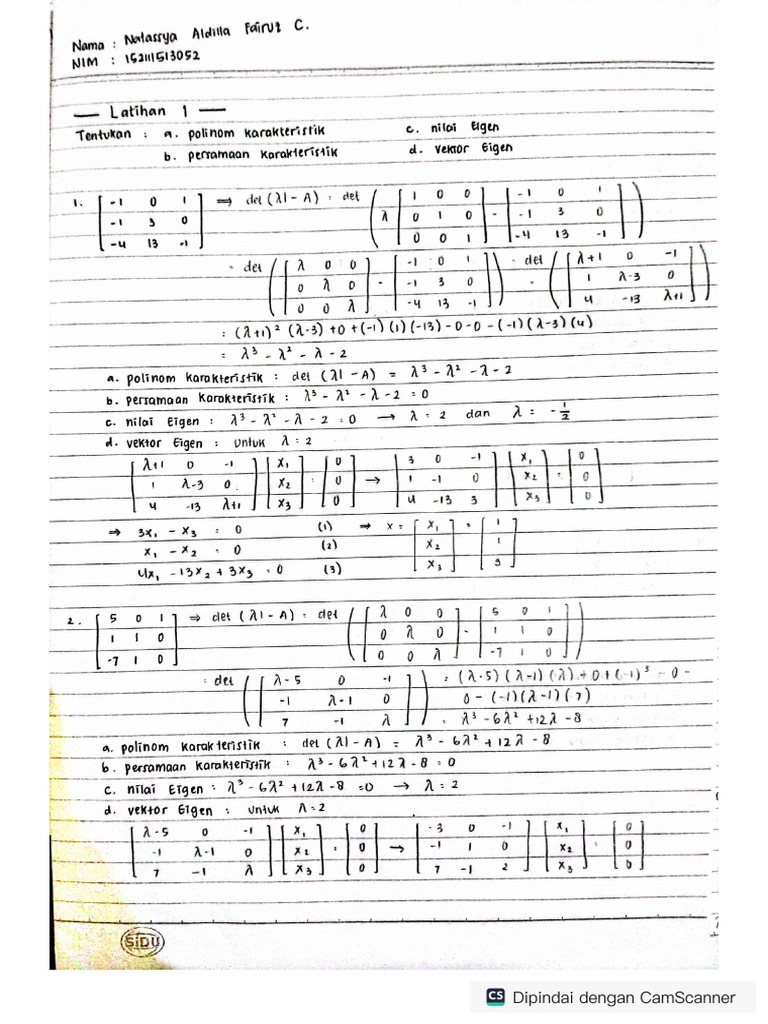 Nama : Natassya Aldilla Fairuz C.
NIM : 152111513052
— Latihan 1 —
Tentukan : a. polinom karakteristik c. nilai Eigen
b. persamaan karakteristik d. vektor Eigen
1. [-1 0 1; -1 3 0; -4 13 -1] ⇒ det (λI - A) = det (λ [1 0 0; 0 1 0; 0 0 1] - [-1 0 1; -1 3 0; -4 13 -1])
= det ([λ 0 0; 0 λ 0; 0 0 λ] - [-1 0 1; -1 3 0; -4 13 -1]) = det ([λ+1 0 -1; 1 λ-3 0; 4 -13 λ+1])
= (λ+1)² (λ-3) + 0 + (-1)(1)(-13) - 0 - 0 - (-1)(λ-3)(4)
= λ³ - λ² - λ - 2
a. polinom karakteristik : det (λI - A) = λ³ - λ² - λ - 2
b. persamaan karakteristik : λ³ - λ² - λ - 2 = 0
c. nilai Eigen : λ³ - λ² - λ - 2 = 0 → λ = 2 dan λ = -1/2
d. vektor Eigen : untuk λ = 2
[λ+1 0 -1; 1 λ-3 0; 4 -13 λ+1] [x₁; x₂; x₃] = [0; 0; 0] → [3 0 -1; 1 -1 0; 4 -13 3] [x₁; x₂; x₃] = [0; 0; 0]
⇒ 3x₁ - x₃ = 0 (1) ⇒ x = [x₁; x₂; x₃] = [1; 1; 3]
x₁ - x₂ = 0 (2)
4x₁ - 13x₂ + 3x₃ = 0 (3)
2. [5 0 1; 1 1 0; -7 1 0] ⇒ det (λI - A) = det ([λ 0 0; 0 λ 0; 0 0 λ] - [5 0 1; 1 1 0; -7 1 0])
= det ([λ-5 0 -1; -1 λ-1 0; 7 -1 λ]) = (λ-5)(λ-1)(λ) + 0 + (-1)³ - 0 -
0 - (-1)(λ-1)(7)
= λ³ - 6λ² + 12λ - 8
a. polinom karakteristik : det (λI - A) = λ³ - 6λ² + 12λ - 8
b. persamaan karakteristik : λ³ - 6λ² + 12λ - 8 = 0
c. nilai Eigen : λ³ - 6λ² + 12λ - 8 = 0 → λ = 2
d. vektor Eigen : untuk λ = 2
[λ-5 0 -1; -1 λ-1 0; 7 -1 λ] [x₁; x₂; x₃] = [0; 0; 0] → [-3 0 -1; -1 1 0; 7 -1 2] [x₁; x₂; x₃] = [0; 0; 0]
SiDU
CS Dipindai dengan CamScanner